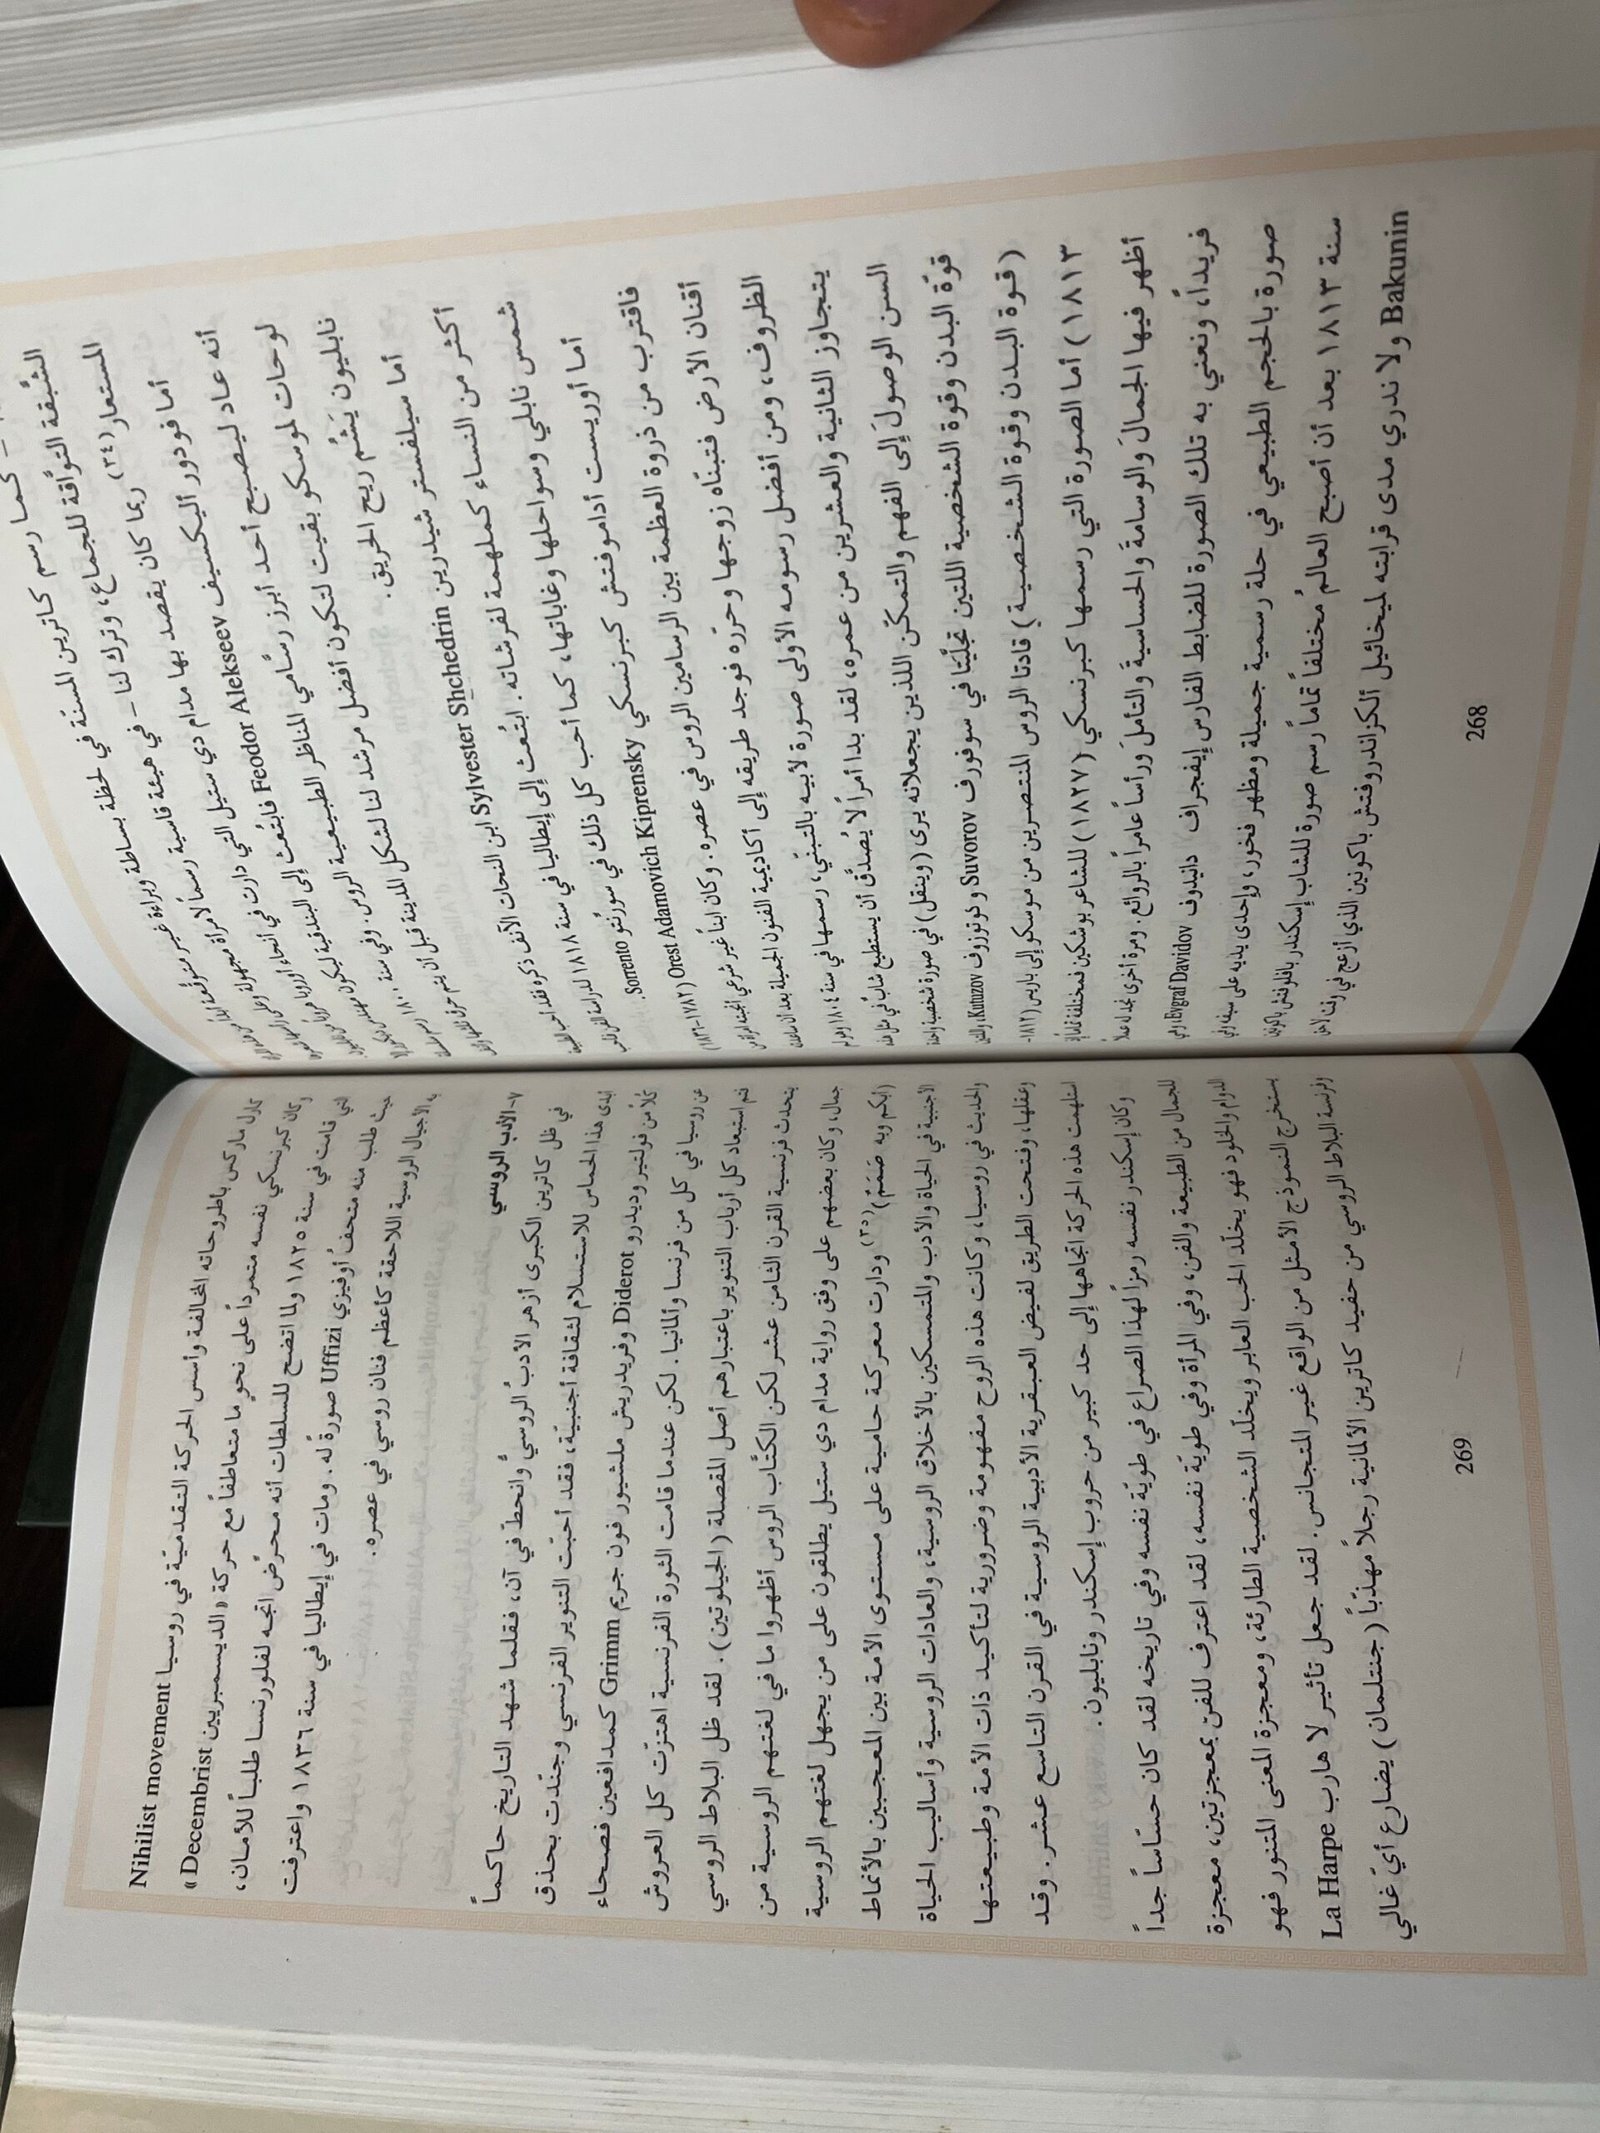 كما رسم كاترين المسنّة في لحظة بساطة وبراءة غير متوقَّعة
الشَّبقة التوَّاقة للجماع، وترك لنا - في هيئة قاسية رسماً لامرأة مجهولة
المستعار(٣٤) ربما كان يقصد بها مدام دي ستيل التي دارت في أنحاء أوروبا
أما فودور أليكسييف Feodor Alekseev فابتُعث إلى البندقية ليكون
أنه عاد ليصبح أحد أبرز رسَّامي المناظر الطبيعية الروس. وفي سنة ١٨٠٠ رسم
لوحات لموسكو بقيت لتكون أفضل مرشد لنا لشكل المدينة قبل أن يتم حرق
نابليون يَشُم ريح الحريق.
أما سيلفستر شيدرين Sylvester Shchedrin ابن النحات الآنف ذكره فقد أحب الطبيعة
أكثر من النساء كملهمة لفرشاته. ابتُعث إلى إيطاليا في سنة ١٨١٨ لدراسة الفن
شمس نابلي وسواحلها وغاباتها، كما أحب كل ذلك في سورنْتو Sorrento.
أما أوريست أداموفتش كبرنسكي Orest Adamovich Kiprensky (١٧٨٢-١٨٣٦)
فاقترب من ذروة العظمة بين الرسامين الروس في عصره. وكان ابناً غير شرعي
أقنان الأرض فتبنّاه زوجها وحرّره فوجد طريقه إلى أكاديمية الفنون الجميلة بعد أن ساعدته
الظروف، ومن أفضل رسومه الأولى صورة لأبيه بالتبنّي، رسمها في سنة ١٨٠٤ ولم
يتجاوز الثانية والعشرين من عمره، لقد بدا أمراً لا يُصدَّق أن يستطيع شابٌ في مثل هذه
السن الوصولَ إلى الفهم والتمكّن اللذين يجعلانه يرى (وينقل) في صورة شخصية واحدة
قوّة البدن وقوة الشخصية اللتين تجلّيتا في سوفورف Suvorov وكوتوزوف Kutuzov، واللتين
(قوة البدن وقوة الشخصية) قادتا الروس المنتصرين من موسكو إلى باريس (١٨١٢-
١٨١٣) أما الصورة التي رسمها كبرنسكي (١٨٢٧) للشاعر بوشكين فمختلفة تماماً إذ
أظهر فيها الجمالَ والوسامةَ والحساسيةَ والتأملَ ورأساً عامراً بالروائع. ومرة أخرى نجد له عملاً
فريداً، ونعني به تلك الصورة للضابط الفارس إيفجراف دانيدوف Evgraf Davidov، وهي
صورة بالحجم الطبيعي في حلة رسمية جميلة ومظهر فخور، وإحدى يديه على سيفه. وفي
سنة ١٨١٣ بعد أن أصبح العالمُ مُختلفاً تماماً رسم صورة للشاب إسكندر بافلوفتش باكونين
Bakunin ولا ندري مدى قرابته لميخائيل ألكزاندروفتش باكونين الذي أزعج في وقت لاحق
268
كارل ماركس بأطروحاته المخالفة وأسس الحركة التقدميّة في روسيا Nihilist movement
وكان كبرنسكي نفسه متمرداً على نحوٍ ما متعاطفاً مع حركة «الديسمبريين Decembrist»
التي قامت في سنة ١٨٢٥ ولما اتضح للسلطات أنه محرِّض اتجه لفلورنسا طلباً للأمان،
حيث طلب منه متحفُ أوفيزي Uffizi صورةً له. ومات في إيطاليا في سنة ١٨٣٦ واعترفت
به الأجيال الروسية اللاحقة كأعظم فنان روسي في عصره.
٧- الأدب الروسي
في ظل كاترين الكبرى أزهر الأدبُ الروسيُّ وانحطّ في آن، فقلما شهد التاريخ حاكماً
أبدى هذا الحماس للاستسلام لثقافة أجنبيّة، فقد أحبّت التنوير الفرنسي وجنّدت بحذق
كلاً من فولتير وديدرو Diderot وفريدريش ملشيور فون جريم Grimm كمدافعين فصحاء
عن روسيا في كل من فرنسا وألمانيا. لكن عندما قامت الثورة الفرنسية اهتزّت كل العروش
فتم استبعاد كل أرباب التنوير باعتبارهم أصل المقصلة (الجيلوتين). لقد ظل البلاط الروسي
يتحدث فرنسية القرن الثامن عشر لكن الكتّاب الروس أظهروا ما في لغتهم الروسية من
جمال، وكان بعضهم على وفق رواية مدام دي ستيل يطلقون على من يجهل لغتهم الروسية
(ابكم وبه صَمَمٌ)(٣٥) ودارت معركة حامية على مستوى الأمة بين المعجبين بالأنماط
الأجنبية في الحياة والأدب والمتمسكين بالأخلاق الروسية، والعادات الروسية وأساليب الحياة
والحديث في روسيا، وكانت هذه الروح مفهومة وضرورية لتأكيد ذات الأمة وطبيعتها
وعقلها، وفتحت الطريق لفيض العبقرية الأدبية الروسية في القرن التاسع عشر. وقد
استلهمت هذه الحركة اتجاهها إلى حد كبير من حروب إسكندر ونابليون.
وكان إسكندر نفسه رمزاً لهذا الصراع في طويّة نفسه وفي تاريخه لقد كان حسّاساً جداً
للجمال من الطبيعة والفن، وفي المرأة وفي طويّة نفسه، لقد اعترف للفن بمعجزتين، معجزة
الدوام والخلود فهو يخلّد الحب العابر ويخلّد الشخصية الطارئة، ومعجزة المعنى المتنور فهو
يستخرج النموذج الأمثل من الواقع غير المتجانس. لقد جعل تأثير لا هارب La Harpe
وفرنسة البلاط الروسي من حفيد كاترين الألمانية رجلاً مهذّباً (جنتلمان) يضارع أيّ غالي
269